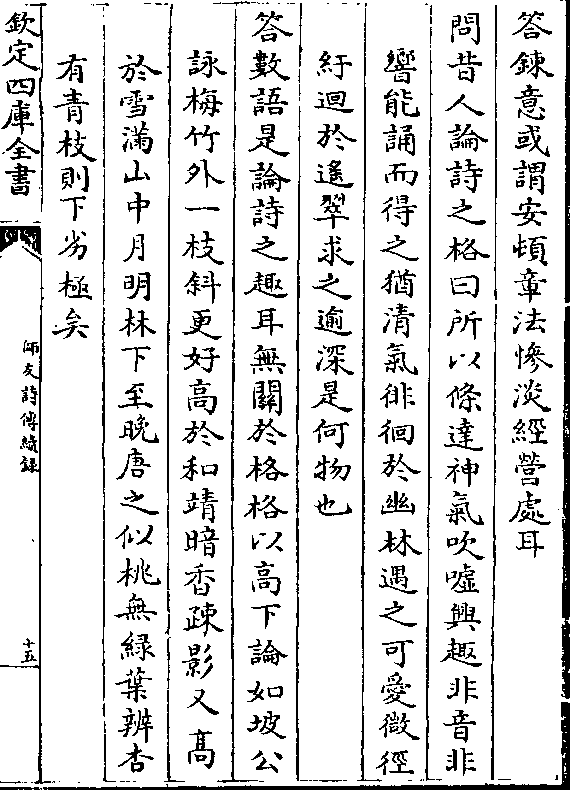 答鍊意或謂安頓章法慘淡經營處耳
問昔人論詩之格曰所以條達神氣吹噓興趣非音非
響能誦而得之猶清氣徘徊於幽林遇之可愛微徑
紆迴於遙翠求之逾深是何物也
答數語是論詩之趣耳無關於格格以高下論如坡公
詠梅竹外一枝斜更好高於和靖暗香疎影又高
於雪滿山中月明林下至晚唐之似桃無緑葉辨杏
有青枝則下劣極矣
欽定四庫全書
師友詩傳續錄
十五